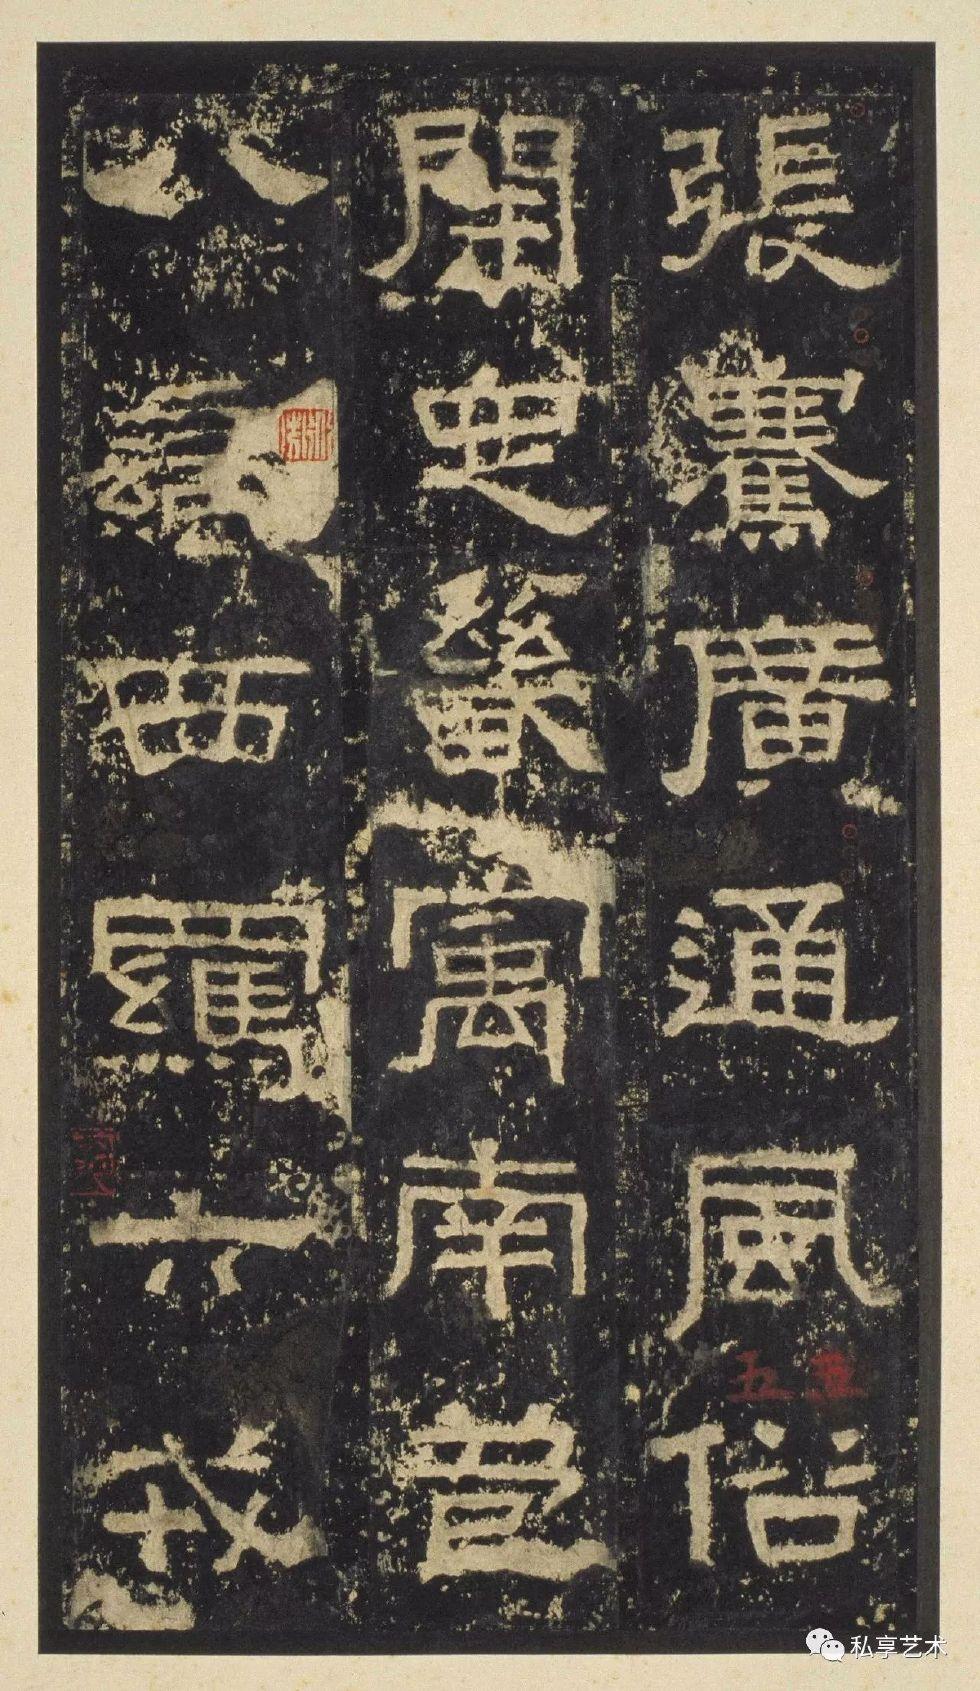 張騫廣通風俗
開定畿寓南苞
八蠻西羈六戎
私享艺术